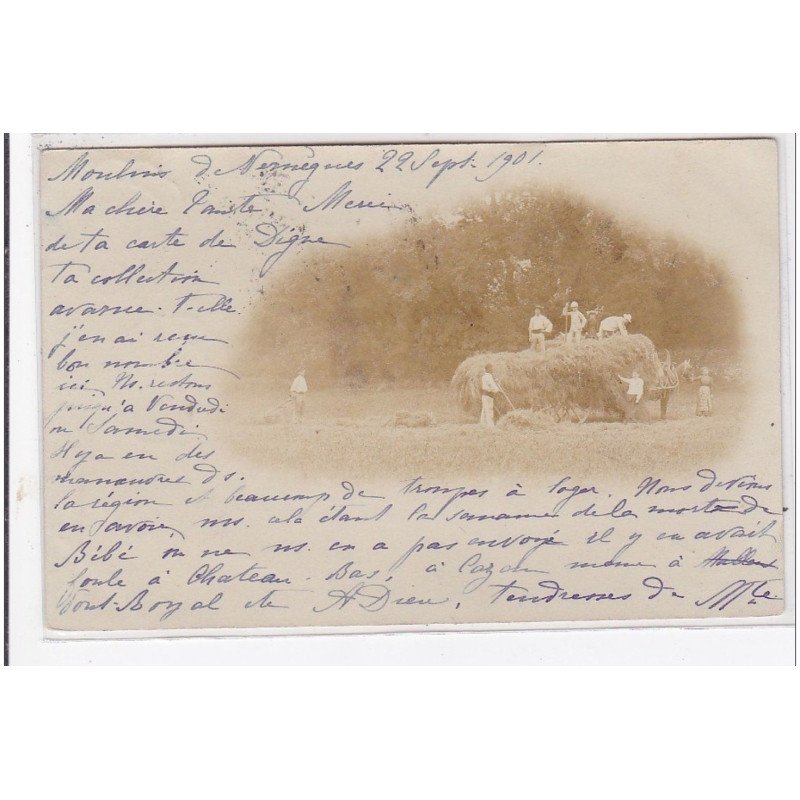 Moulins de Nemègues 22 Sept. 1901.
Ma chère Tante, Merci
de ta carte de Digne
ta collection
avance-t-elle
j'en ai reçu
bon nombre
ici Ns. restons
jusqu'à Vendredi
ou Samedi
Il y a eu des
manœuvres ds.
la région et beaucoup de troupes à loger. Nous devions
en avoir, ms. cela étant la semaine de la mort de
Bébé on ne ns. en a pas envoyé il y en avait
foule à Chateau-Bas, à Cazan même à
Pont-Royal etc A Dieu, tendresses de Mte